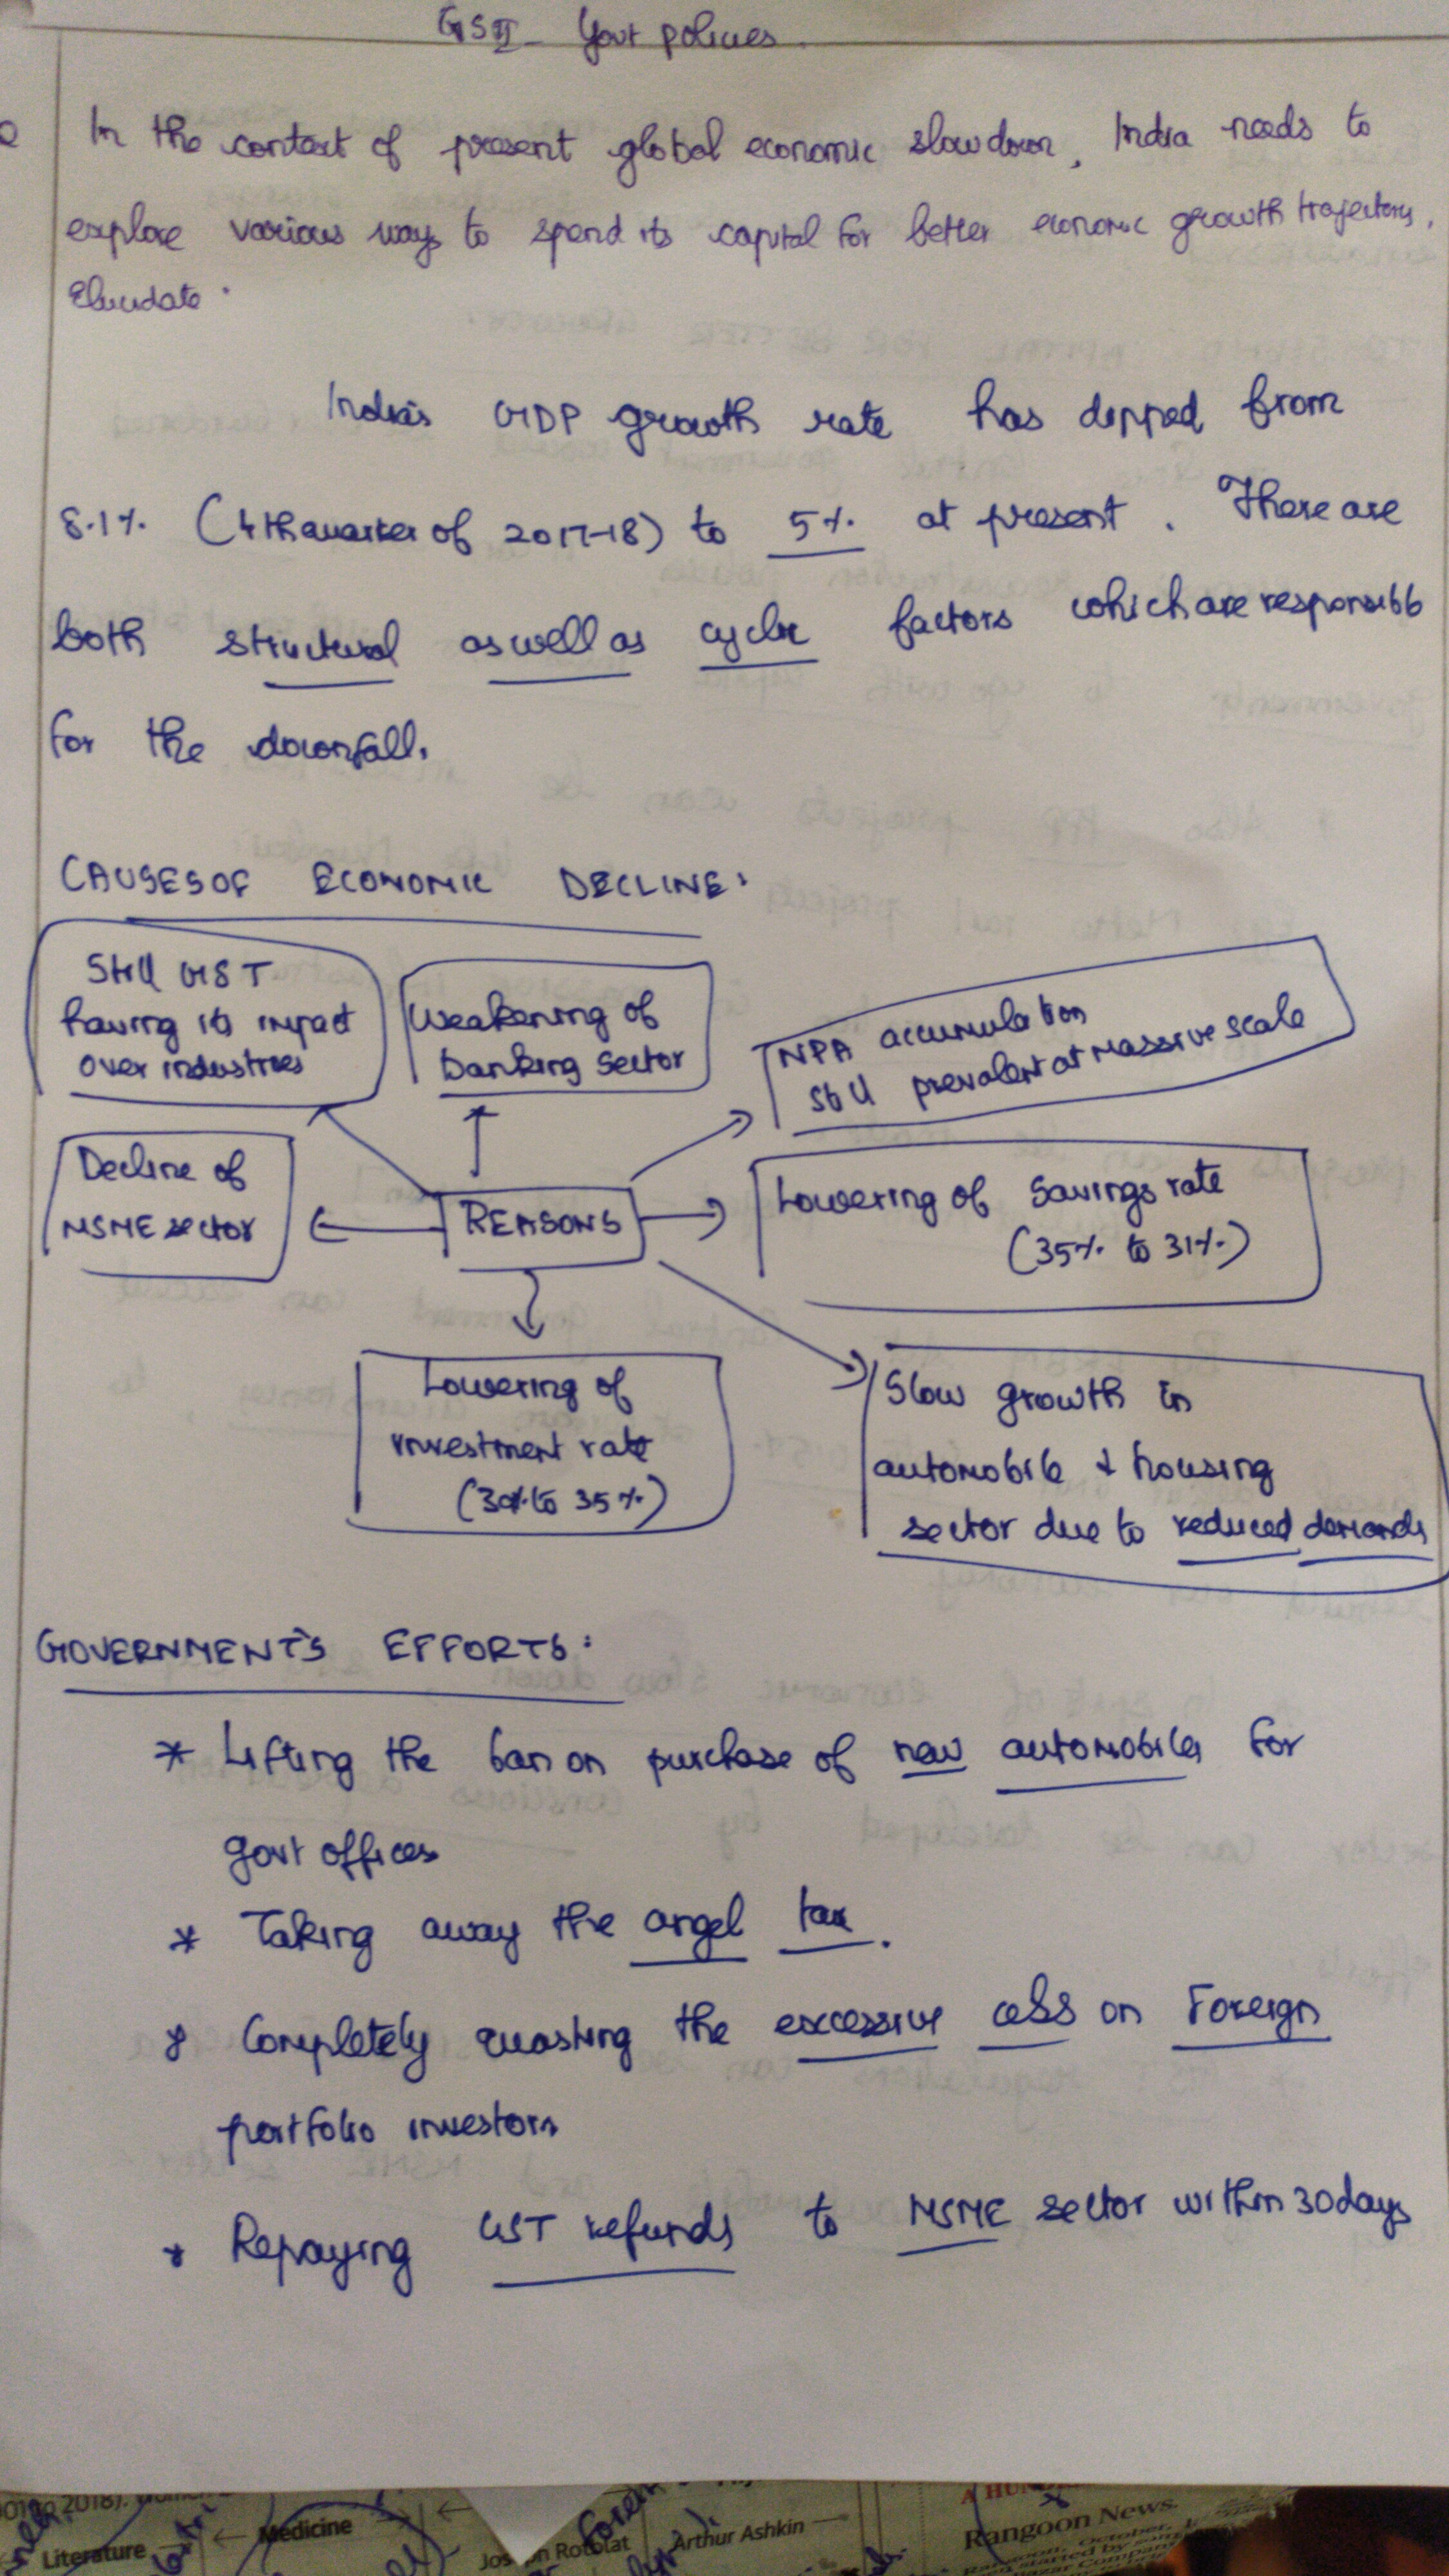 GS II - Govt policies.
In the context of present global economic slowdown, India needs to
explore various ways to spend its capital for better economic growth trajectory.
Elucidate.
India's GDP growth rate has dipped from
8.1% (4th quarter of 2017-18) to 5% at present. There are
both structural as well as cyclic factors which are responsible
for the downfall.
CAUSES OF ECONOMIC DECLINE:
Still GST
having its impact
over industries
Weakening of
banking sector
NPA accumulation
still prevalent at massive scale
Decline of
MSME sector
REASONS
Lowering of savings rate
(35% to 31%)
Lowering of
investment rate
(30% to 35%)
Slow growth in
automobile & housing
sector due to reduced demands
GOVERNMENT'S EFFORTS:
* Lifting the ban on purchase of new automobiles for
govt offices
* Taking away the angel tax.
* Completely quashing the excessive cess on Foreign
portfolio investors
* Repaying GST refunds to MSME sector within 30 days
to 2018).
Literature
Medicine
Rotblat
Arthur Ashkin
Rangoon News
October,